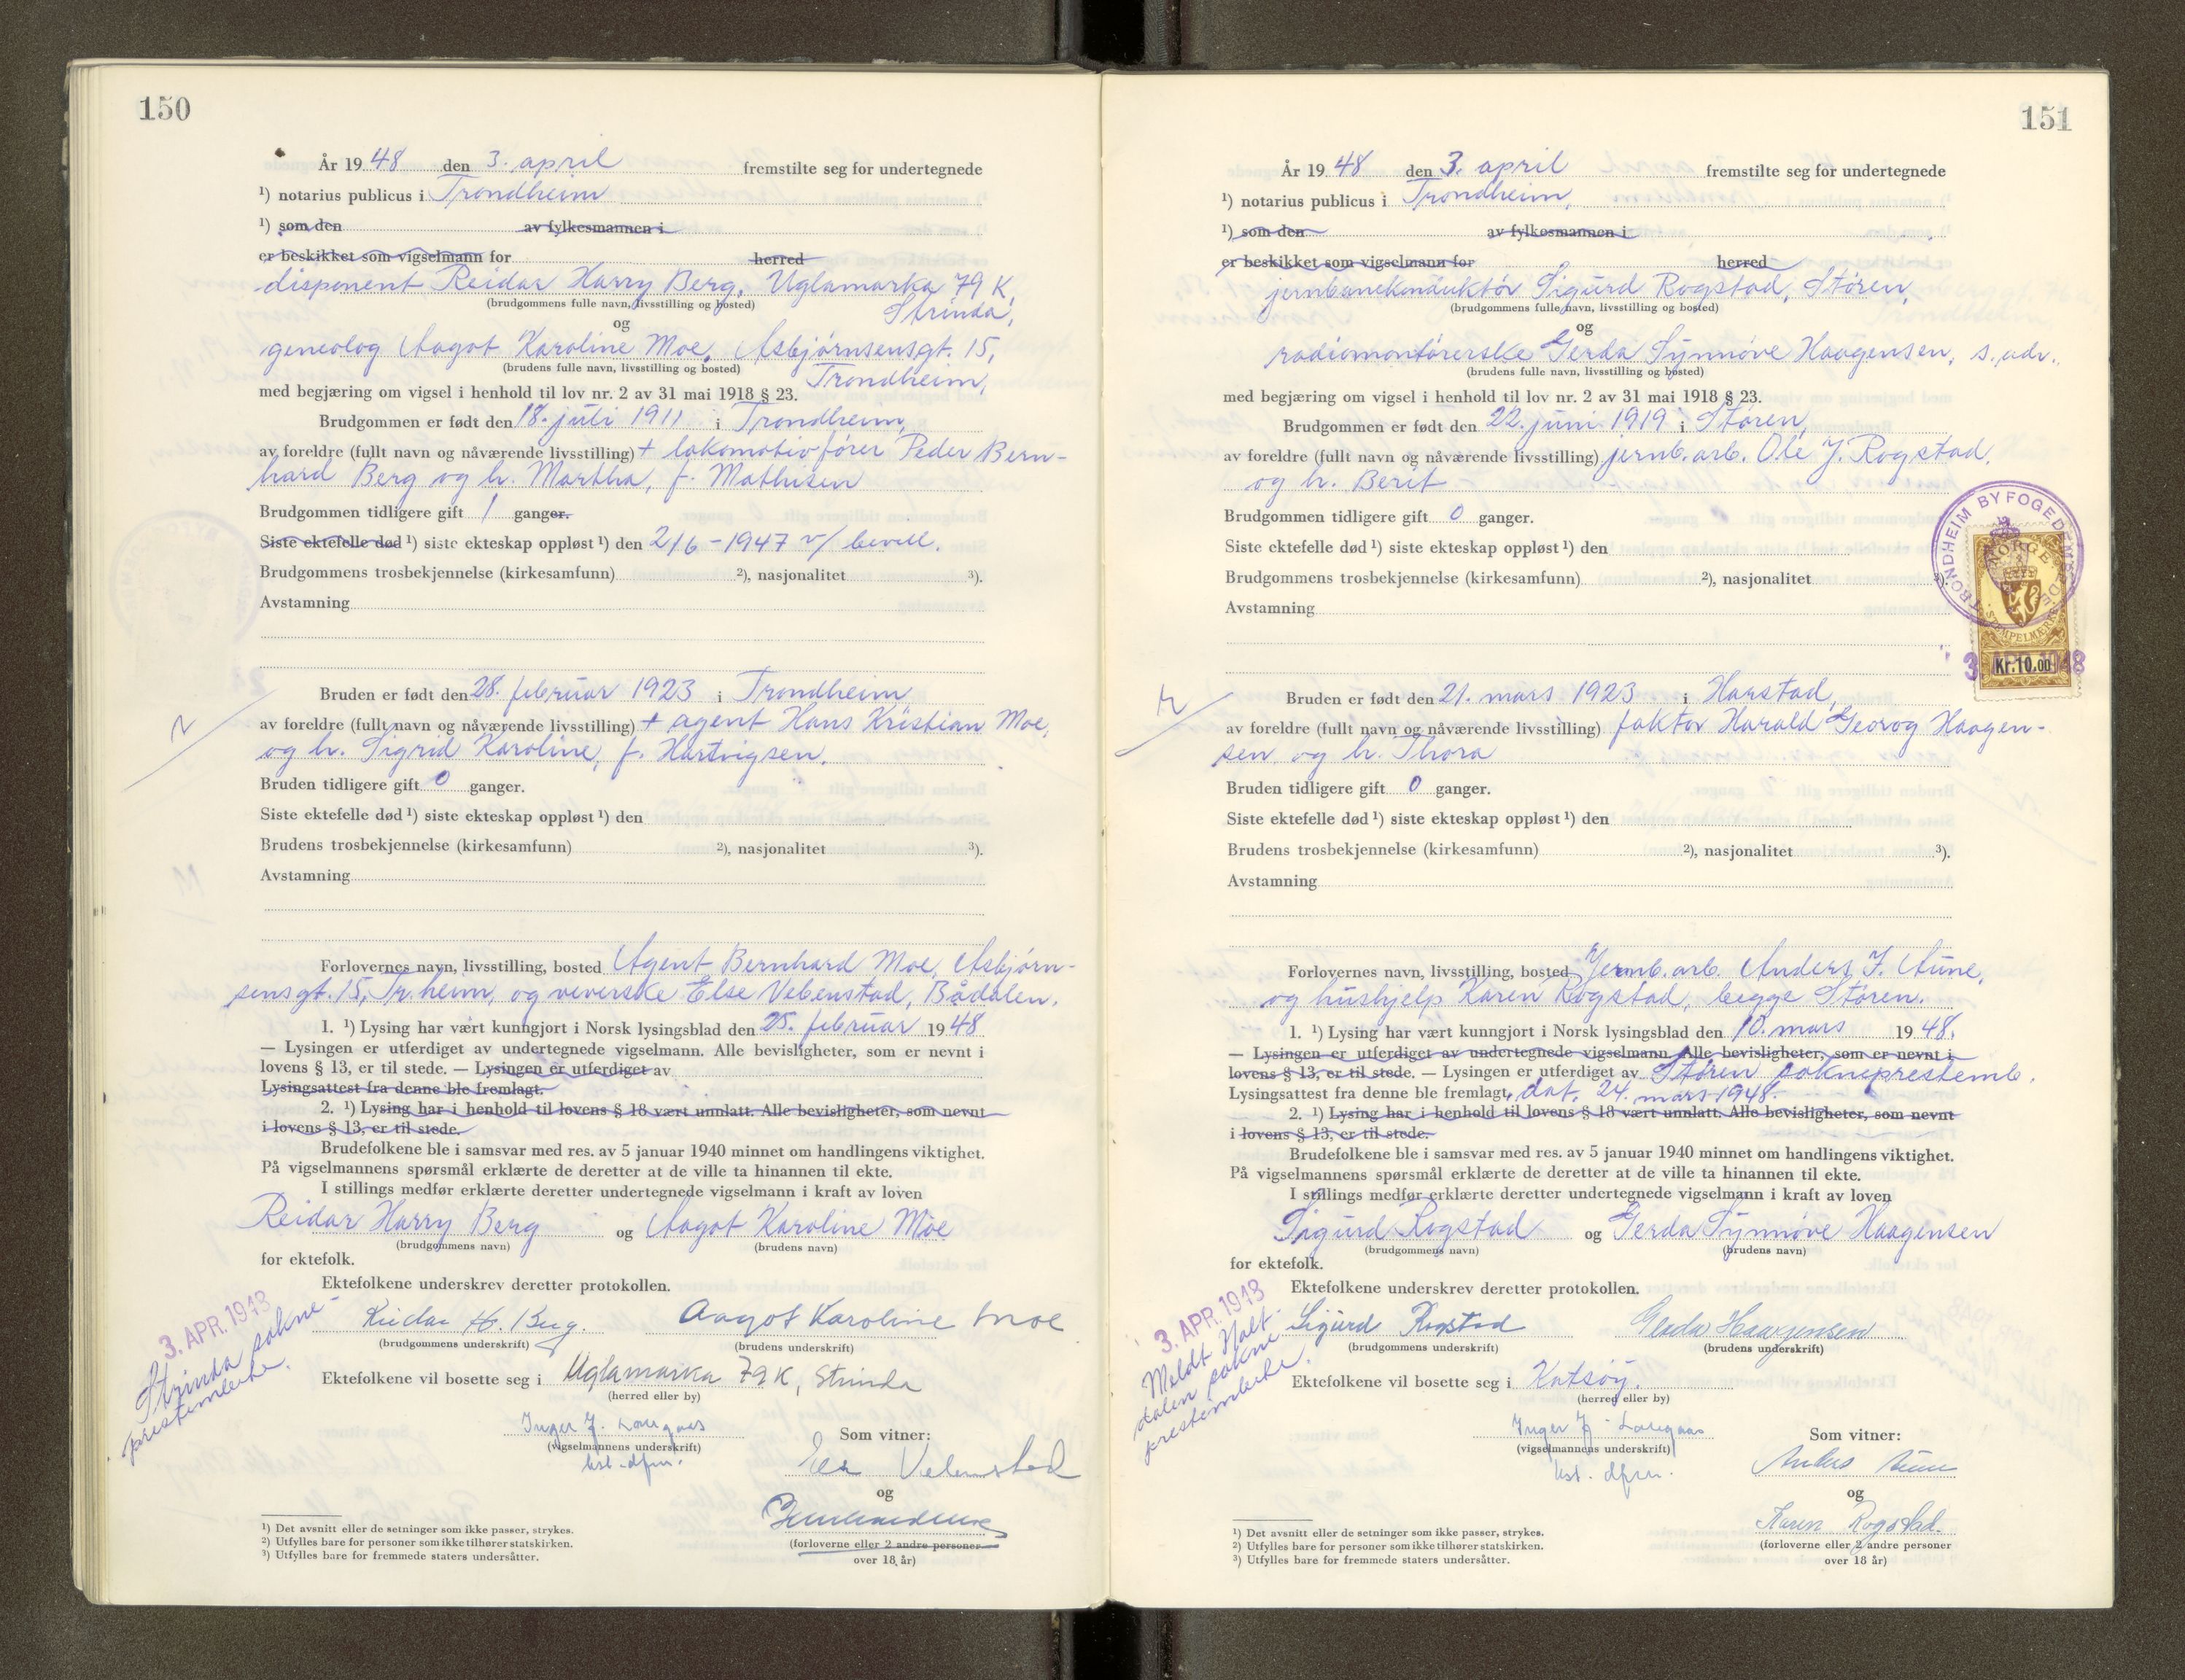 150
År 1948 den 3. april fremstilte seg for undertegnede
¹) notarius publicus i Trondheim
¹) som den av fylkesmannen i
er beskikket som vigselmann for herred
disponent Reidar Harry Berg, Uglamarka 79 K,
(brudgommens fulle navn, livsstilling og bosted)
Strinda,
og
geneolog Aagot Karoline Moe, Asbjørnsensgt. 15,
(brudens fulle navn, livsstilling og bosted)
Trondheim,
med begjæring om vigsel i henhold til lov nr. 2 av 31 mai 1918 § 23.
Brudgommen er født den 18. juli 1911 i Trondheim,
av foreldre (fullt navn og nåværende livsstilling) + lokomotivfører Peder Bern-
hard Berg og h. Martha, f. Mathisen
Brudgommen tidligere gift 1 ganger.
Siste ektefelle død ¹) siste ekteskap oppløst ¹) den 2/6 - 1947 v/ bevill.
Brudgommens trosbekjennelse (kirkesamfunn) ²), nasjonalitet ³).
Avstamning
Bruden er født den 28. februar 1923 i Trondheim
av foreldre (fullt navn og nåværende livsstilling) + agent Hans Kristian Moe,
og h. Sigrid Karoline, f. Hartvigsen.
Bruden tidligere gift 0 ganger.
Siste ektefelle død ¹) siste ekteskap oppløst ¹) den
Brudens trosbekjennelse (kirkesamfunn) ²), nasjonalitet ³).
Avstamning
Forlovernes navn, livsstilling, bosted Agent Bernhard Moe, Asbjørn-
sensgt. 15, Tr.heim, og veverske Else Vebenstad, Bådalen.
1. ¹) Lysing har vært kunngjort i Norsk lysingsblad den 25. februar 1948
— Lysingen er utferdiget av undertegnede vigselmann. Alle bevisligheter, som er nevnt i
lovens § 13, er til stede. — Lysingen er utferdiget av
Lysingsattest fra denne ble fremlagt.
2. ¹) Lysing har i henhold til lovens § 18 vært unnlatt. Alle bevisligheter, som nevnt
i lovens § 13, er til stede.
Brudefolkene ble i samsvar med res. av 5 januar 1940 minnet om handlingens viktighet.
På vigselmannens spørsmål erklærte de deretter at de ville ta hinannen til ekte.
I stillings medfør erklærte deretter undertegnede vigselmann i kraft av loven
Reidar Harry Berg og Aagot Karoline Moe
(brudgommens navn) (brudens navn)
for ektefolk.
Ektefolkene underskrev deretter protokollen.
3. APR. 1948
Strinda sokne-
prestembete.
Reidar H. Berg. Aagot Karoline Moe
(brudgommens underskrift) (brudens underskrift)
Ektefolkene vil bosette seg i Uglamarka 79 K, Strinda
(herred eller by)
Inger J.
(vigselmannens underskrift)
kst. dfm.
Som vitner:
og
(forloverne eller 2 andre personer
over 18 år)
¹) Det avsnitt eller de setninger som ikke passer, strykes.
²) Utfylles bare for personer som ikke tilhører statskirken.
³) Utfylles bare for fremmede staters undersåtter.
151
År 1948 den 3. april fremstilte seg for undertegnede
¹) notarius publicus i Trondheim,
¹) som den av fylkesmannen i
er beskikket som vigselmann for herred
jernbanekonduktør Sigurd Rogstad, Støren,
(brudgommens fulle navn, livsstilling og bosted)
og
radiomontørerske Gerda Synnøve Haagensen, s. adr.
(brudens fulle navn, livsstilling og bosted)
med begjæring om vigsel i henhold til lov nr. 2 av 31 mai 1918 § 23.
Brudgommen er født den 22. juni 1919 i Støren,
av foreldre (fullt navn og nåværende livsstilling) jernb.arb. Ole J. Rogstad,
og h. Berit
Brudgommen tidligere gift 0 ganger.
Siste ektefelle død ¹) siste ekteskap oppløst ¹) den
Brudgommens trosbekjennelse (kirkesamfunn) ²), nasjonalitet ³).
Avstamning
TRONDHEIM BYFOGEDEMBEDE
NORGE
STEMPELMERKE
Kr. 10.00
3 APR 1948
Bruden er født den 21. mars 1923 i Harstad,
av foreldre (fullt navn og nåværende livsstilling) faktor Harald Georog Haagen-
sen og h. Thora
Bruden tidligere gift 0 ganger.
Siste ektefelle død ¹) siste ekteskap oppløst ¹) den
Brudens trosbekjennelse (kirkesamfunn) ²), nasjonalitet ³).
Avstamning
Forlovernes navn, livsstilling, bosted Jernb.arb. Anders J. Aune,
og hushjelp Karen Rogstad, begge Støren.
1. ¹) Lysing har vært kunngjort i Norsk lysingsblad den 10. mars 1948.
— Lysingen er utferdiget av undertegnede vigselmann. Alle bevisligheter, som er nevnt i
lovens § 13, er til stede. — Lysingen er utferdiget av Støren sokneprestemb.
Lysingsattest fra denne ble fremlagt, dat. 24. mars 1948.
2. ¹) Lysing har i henhold til lovens § 18 vært unnlatt. Alle bevisligheter, som nevnt
i lovens § 13, er til stede.
Brudefolkene ble i samsvar med res. av 5 januar 1940 minnet om handlingens viktighet.
På vigselmannens spørsmål erklærte de deretter at de ville ta hinannen til ekte.
I stillings medfør erklærte deretter undertegnede vigselmann i kraft av loven
Sigurd Rogstad og Gerda Synnøve Haagensen
(brudgommens navn) (brudens navn)
for ektefolk.
Ektefolkene underskrev deretter protokollen.
3. APR. 1948
Meldt Halt-
dalen sokne
prestembete.
Sigurd Rogstad Gerda Haagensen
(brudgommens underskrift) (brudens underskrift)
Ektefolkene vil bosette seg i
(herred eller by)
Inger J.
(vigselmannens underskrift)
kst. dfm.
Som vitner:
Anders Aune
og
Karen Rogstad.
(forloverne eller 2 andre personer
over 18 år)
¹) Det avsnitt eller de setninger som ikke passer, strykes.
²) Utfylles bare for personer som ikke tilhører statskirken.
³) Utfylles bare for fremmede staters undersåtter.